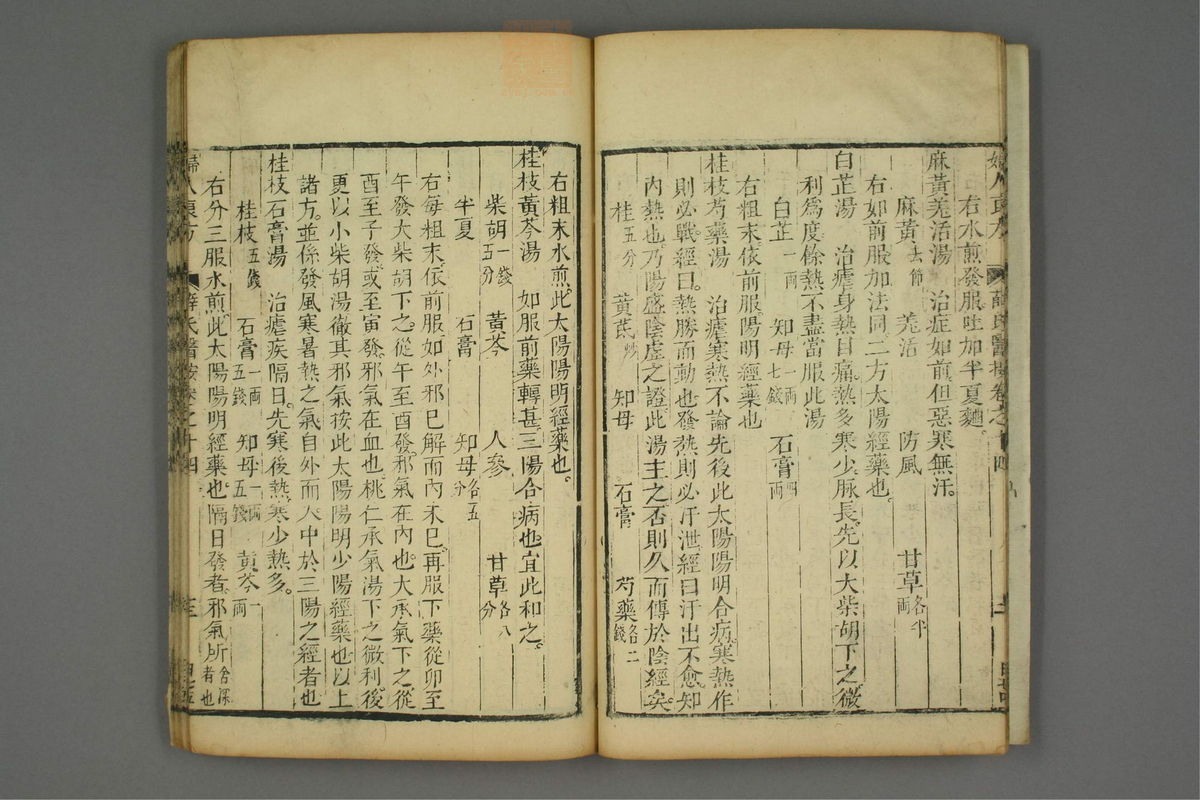 婦人良方 薛氏醫按卷之十四
右水煎發服吐加半夏麯。
麻黃羌活湯 治症如前但惡寒無汗。
麻黃去節 羌活 防風 甘草各半兩
右如前服加法同二方太陽經藥也。
白芷湯 治瘧身熱目痛熱多寒少脉長先以大柴胡下之微
利爲度餘熱不盡當服此湯
白芷一兩 知母一兩七錢 石膏四兩
右粗末依前服陽明經藥也
桂枝芍藥湯 治瘧寒熱不論先後此太陽陽明合病寒熱作
則必戰經曰熱勝而動也發熱則必汗泄經曰汗出不愈知
內熱也乃陽盛陰虛之證此湯主之否則久而傳於陰經矣
桂五分 黃芪炒 知母 石膏 芍藥各二錢
右粗末水煎此太陽陽明經藥也。
桂枝黃芩湯 如服前藥轉甚三陽合病也宜此和之。
柴胡一錢五分 黃芩 人參 甘草各八分
半夏 石膏 知母各五分
右每粗末依前服如外邪已解而內未已再服下藥從卯至
午發大柴胡下之從午至酉發邪氣在內也大承氣下之從
酉至子發或至寅發邪氣在血也桃仁承氣湯下之微利後
更以小柴胡湯徹其邪氣按此太陽陽明少陽經藥也以上
諸方並係發風寒暑熱之氣自外而入中於三陽之經者也
桂枝石膏湯 治瘧疾隔日先寒後熱寒少熱多。
桂枝五錢 石膏一兩五錢 知母一兩五錢 黃芩一兩
右分三服水煎此太陽陽明經藥也隔日發者邪氣所舍深者也
婦人良方 薛氏醫按卷之十四